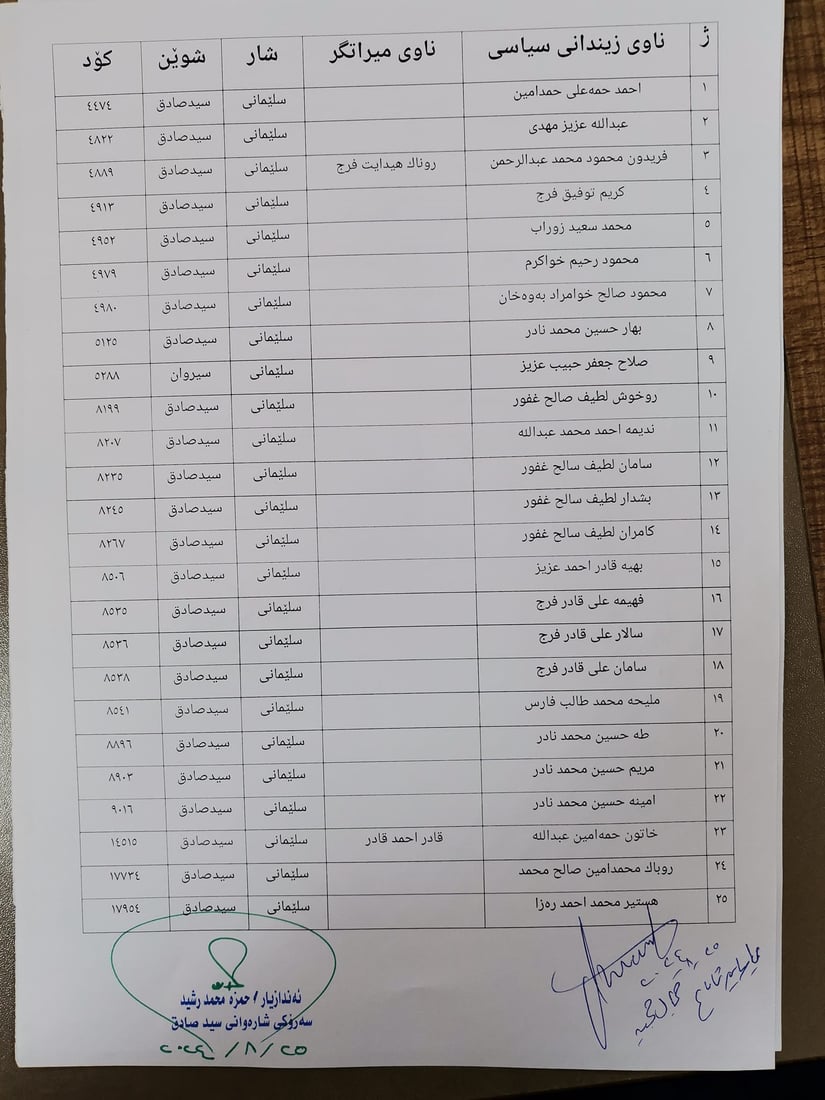 ژ ناوی زیندانی سیاسی ناوی میراتگر شار شوێن کۆد
١ احمد حمەعلی حمدامین سلێمانی سیدصادق ٤٤٧٤
٢ عبدالله عزیز مهدی سلێمانی سیدصادق ٤٨٢٢
٣ فریدون محمود محمد عبدالرحمن روناك هیدایت فرج سلێمانی سیدصادق ٤٨٨٩
٤ کریم توفیق فرج سلێمانی سیدصادق ٤٩١٣
٥ محمد سعید زوراب سلێمانی سیدصادق ٤٩٥٢
٦ محمود رحیم خواکرم سلێمانی سیدصادق ٤٩٧٩
٧ محمود صالح خوامراد بەوەخان سلێمانی سیدصادق ٤٩٨٠
٨ بهار حسین محمد نادر سلێمانی سیدصادق ٥١٢٥
٩ صلاح جعفر حبیب عزیز سلێمانی سیروان ٥٢٨٨
١٠ روخوش لطیف صالح غفور سلێمانی سیدصادق ٨١٩٩
١١ ندیمه احمد محمد عبدالله سلێمانی سیدصادق ٨٢٠٧
١٢ سامان لطیف سالح غفور سلێمانی سیدصادق ٨٢٣٥
١٣ بشدار لطیف سالح غفور سلێمانی سیدصادق ٨٢٤٥
١٤ کامران لطیف سالح غفور سلێمانی سیدصادق ٨٢٦٧
١٥ بهیه قادر احمد عزیز سلێمانی سیدصادق ٨٥٠٦
١٦ فهیمه علی قادر فرج سلێمانی سیدصادق ٨٥٣٥
١٧ سالار علی قادر فرج سلێمانی سیدصادق ٨٥٣٦
١٨ سامان علی قادر فرج سلێمانی سیدصادق ٨٥٣٨
١٩ ملیحه محمد طالب فارس سلێمانی سیدصادق ٨٥٤١
٢٠ طه حسین محمد نادر سلێمانی سیدصادق ٨٨٩٦
٢١ مریم حسین محمد نادر سلێمانی سیدصادق ٨٩٠٣
٢٢ امینه حسین محمد نادر سلێمانی سیدصادق ٩٠١٦
٢٣ خاتون حمەامین عبدالله قادر احمد قادر سلێمانی سیدصادق ١٤٥١٥
٢٤ روباك محمدامین صالح محمد سلێمانی سیدصادق ١٧٧٣٤
٢٥ هستیر محمد احمد رەزا سلێمانی سیدصادق ١٧٩٥٤
ئەندازیار / حمزه محمد رشید
سەرۆکی شارەوانی سید صادق
٢٠٢٤/٨/٢٥